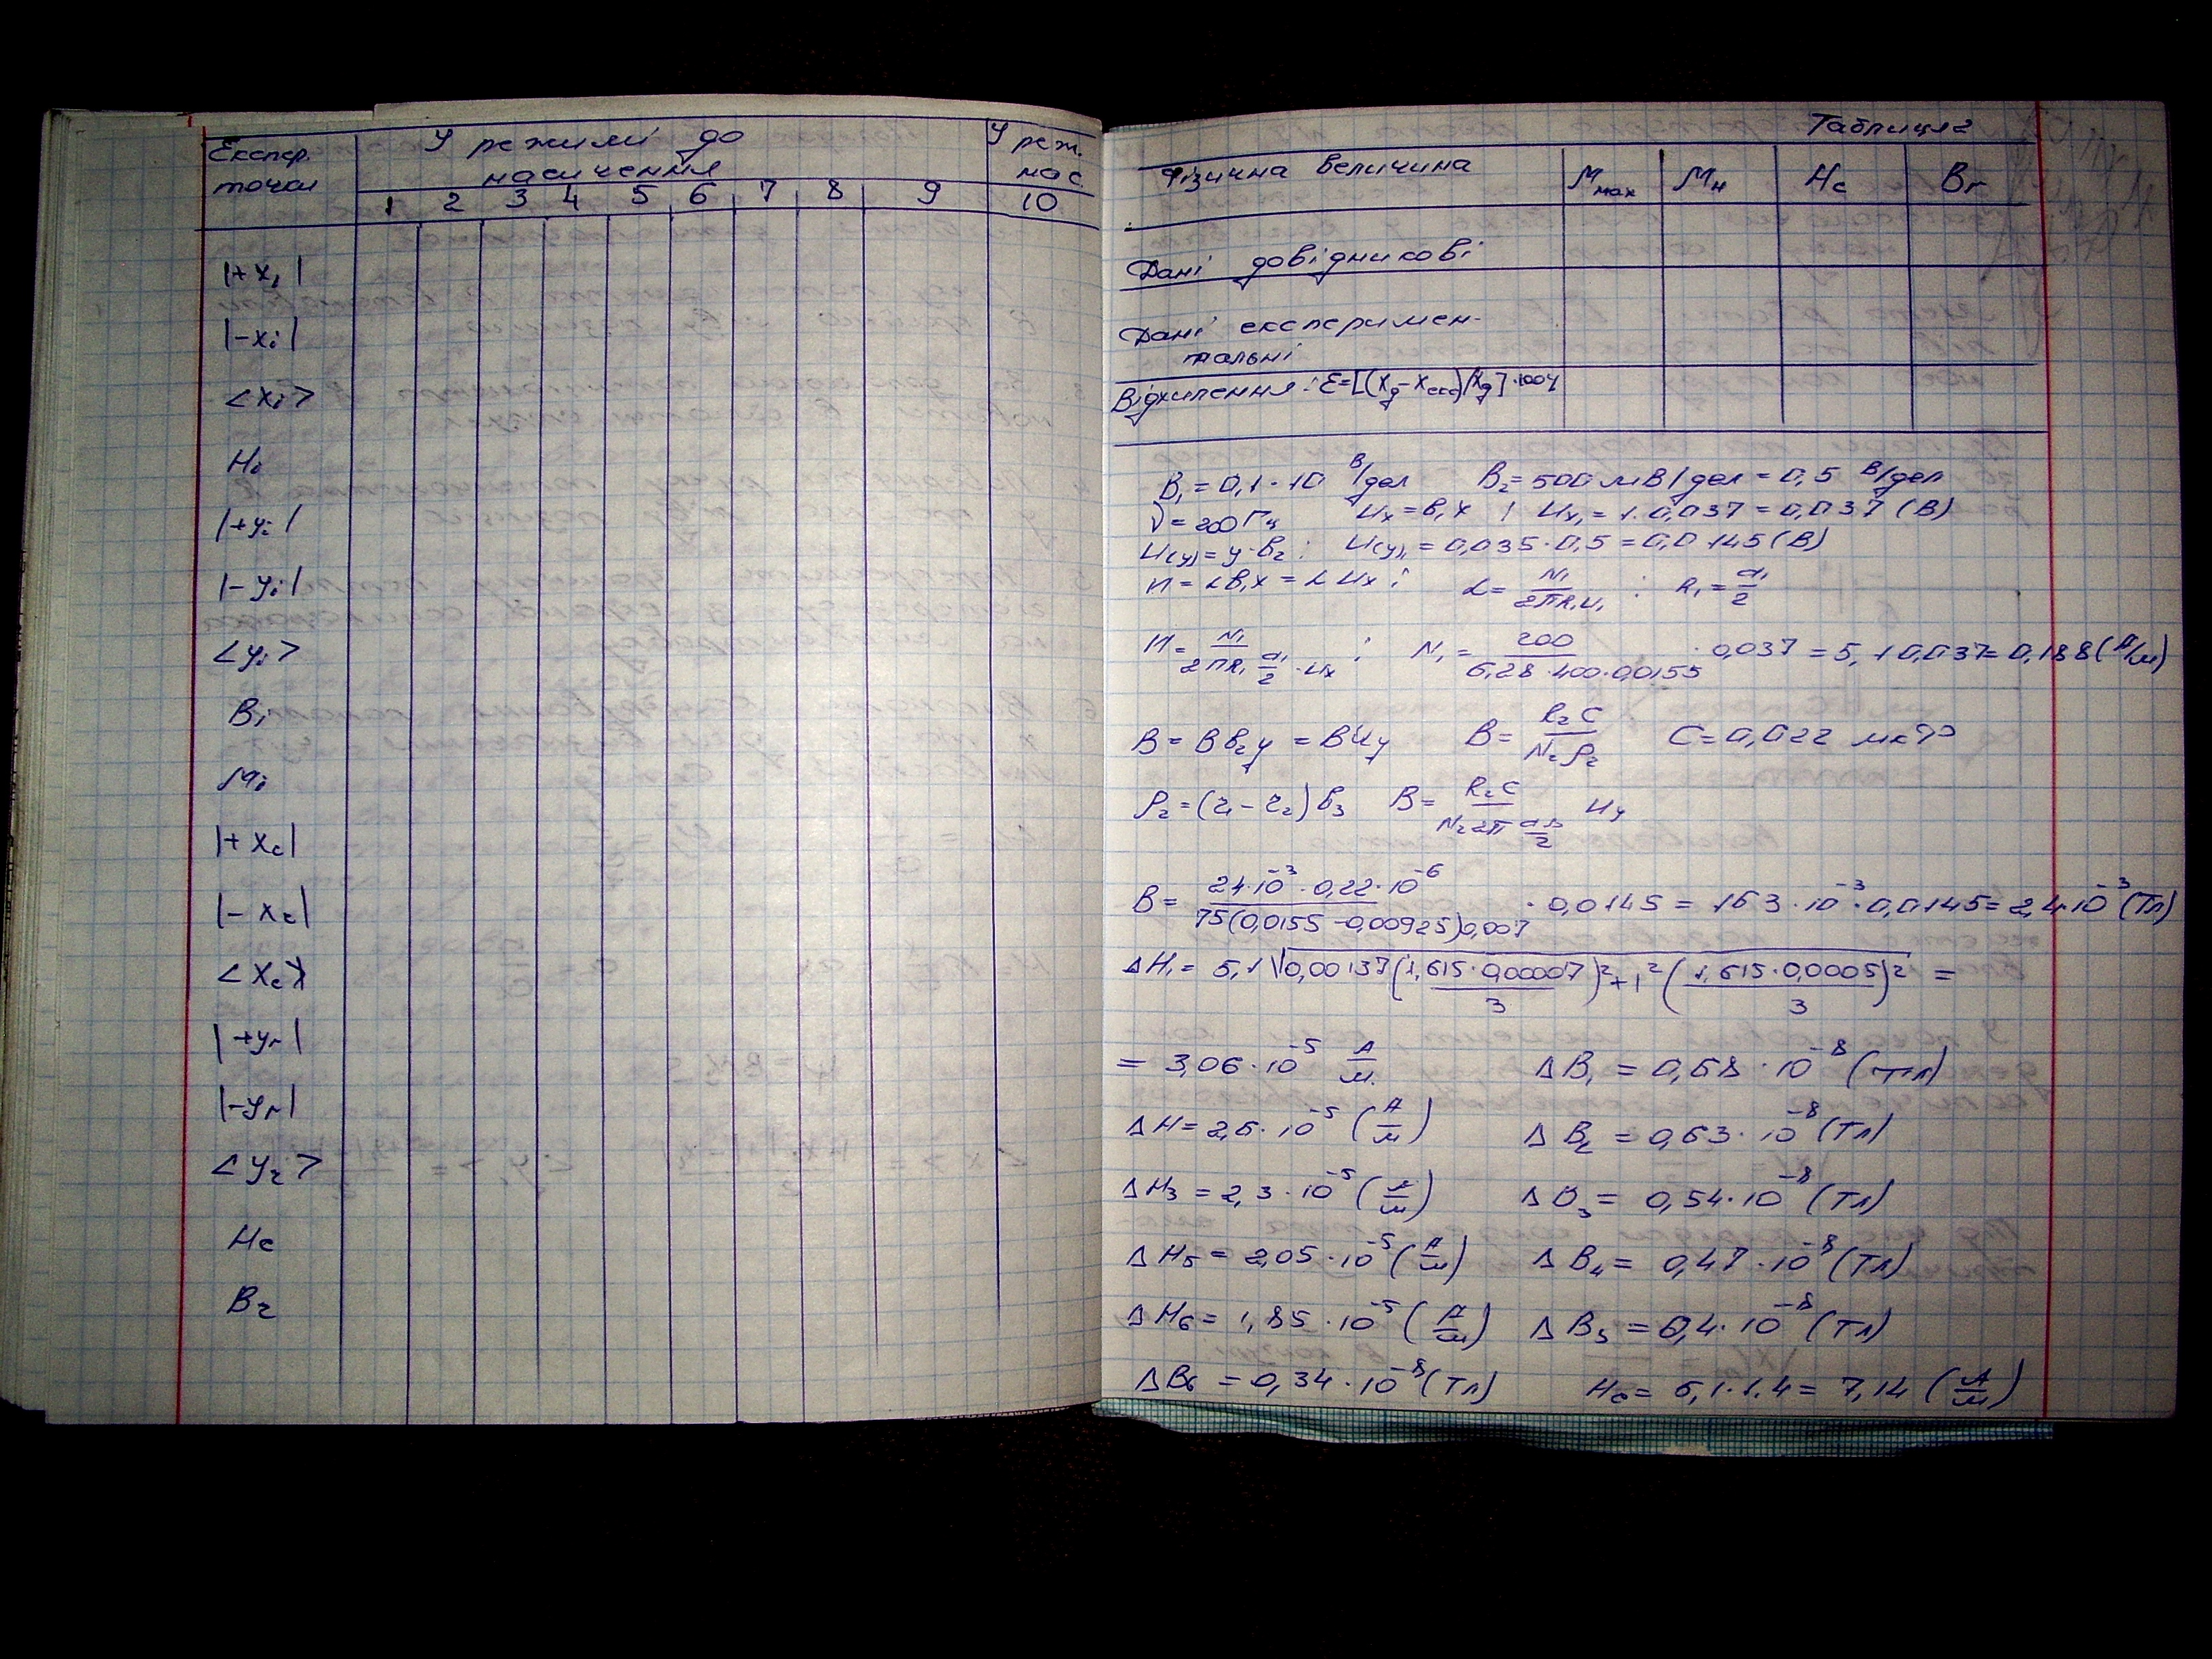 Експер. У режимі до У реж.
точки насичення нас.
1 2 3 4 5 6 7 8 9 10
|+x₁|
|-xᵢ|
<xᵢ>
Hᵢ
|+yᵢ|
|-yᵢ|
<yᵢ>
Bᵢ
Mᵢ
|+xc|
|-xc|
<xc>
|+yr|
|-yr|
<yr>
Hc
Br
Таблиця 2
Фізична величина Mmax Mн Hc Br
Дані довідникові
Дані експеримен-
тальні
Відхилення: ε=[(xg-xекс)/xg]·100%
B₁ = 0,1·10 В/дел B₂ = 500 мВ/дел = 0,5 В/дел
ν = 200 Гц Ux = B₁X ; Ux₁ = 1·0,037 = 0,037 (В)
U(y) = y·B₂ ; U(y)₁ = 0,035·0,5 = 0,0145 (В)
H = αB₁X = αUx ; α = N₁/2πR₁U₁ ; R₁ = d₁/2
H = N₁/2πR₁ d₁/2 · Ux ; N₁ = 200/6,28·400·0,0155 · 0,037 = 5,1·0,037 = 0,188 (А/м)
B = BB₂y = BUy B = R₂C/N₂ρ₂ C = 0,022 мкФ
ρ₂ = (r₁ - r₂)b₃ B = R₂C/N₂2π d₃/2 Uy
B = 24·10⁻³·0,22·10⁻⁶/75(0,0155-0,00925)0,007 · 0,0145 = 163·10⁻³·0,0145 = 2,4·10⁻³ (Тл)
ΔH₁ = 5,1√0,00137(1,615·0,00007/3)² + 1²(1,615·0,0005/3)² =
= 3,06·10⁻⁵ А/м. ΔB₁ = 0,68·10⁻⁸ (Тл)
ΔH = 2,6·10⁻⁵ (А/м) ΔB₂ = 0,63·10⁻⁸ (Тл)
ΔH₃ = 2,3·10⁻⁵ (А/м) ΔB₃ = 0,54·10⁻⁸ (Тл)
ΔH₅ = 2,05·10⁻⁵ (А/м) ΔB₄ = 0,47·10⁻⁸ (Тл)
ΔH₆ = 1,85·10⁻⁵ (А/м) ΔB₅ = 0,4·10⁻⁸ (Тл)
ΔB₆ = 0,34·10⁻⁸ (Тл) Hc = 5,1·1,4 = 7,14 (А/м)